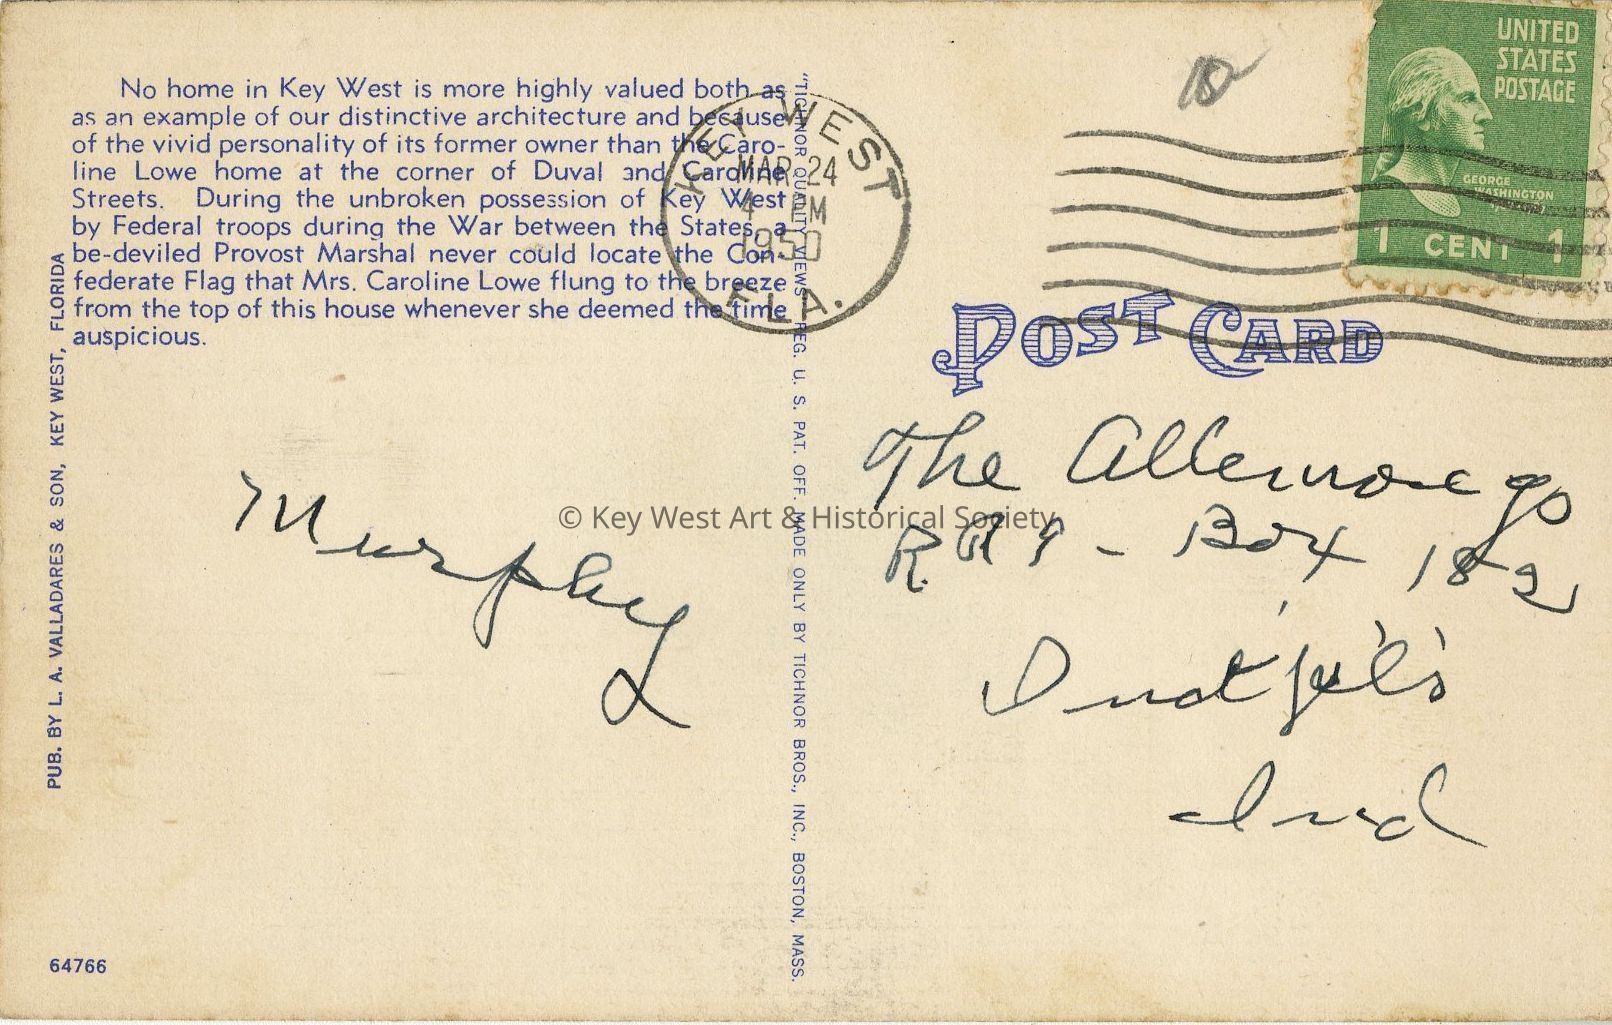 No home in Key West is more highly valued both as
as an example of our distinctive architecture and because
of the vivid personality of its former owner than the Caro-
line Lowe home at the corner of Duval and Caroline
Streets. During the unbroken possession of Key West
by Federal troops during the War between the States, a
be-deviled Provost Marshal never could locate the Con-
federate Flag that Mrs. Caroline Lowe flung to the breeze
from the top of this house whenever she deemed the time
auspicious.
PUB. BY L. A. VALLADARES & SON, KEY WEST, FLORIDA
64766
Murphy
"TICHNOR QUALITY VIEWS" REG. U. S. PAT. OFF. MADE ONLY BY TICHNOR BROS., INC., BOSTON, MASS.
KEY WEST
MAR 24
4 PM
1950
FLA.
UNITED
STATES
POSTAGE
GEORGE
WASHINGTON
1 CENT 1
POST CARD
The
- Box 182
Ind
© Key West Art & Historical Society